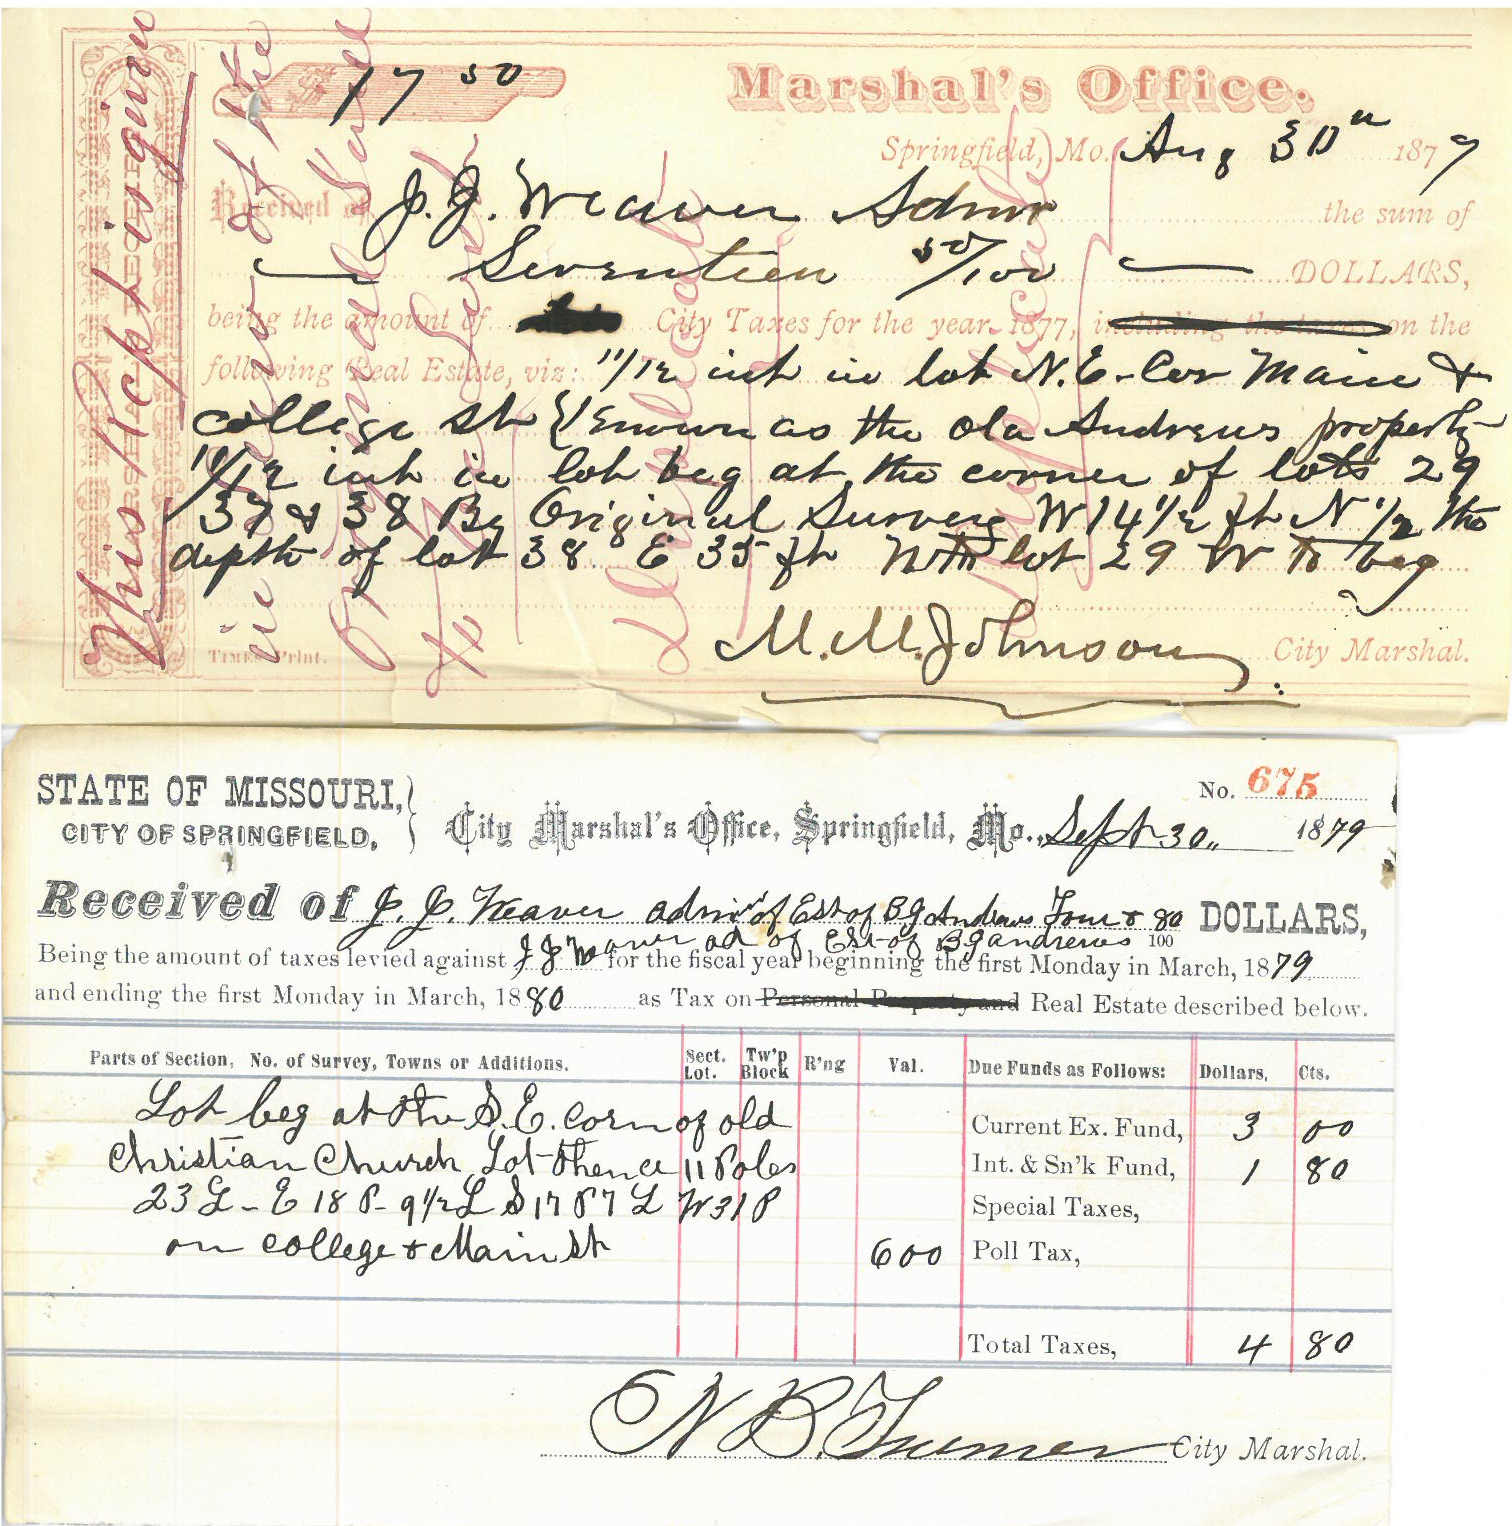 17 50
Marshal's Office.
Springfield, Mo. Aug 30" 1879
Received of J. J. Weaver Admr the sum of
Seventeen 50/100 DOLLARS,
being the amount of City Taxes for the year 1877, including the taxes on the
following Real Estate, viz: 11/12 int in lot N.E. Cor Main &
College St Known as the old Andrews property
11/12 int in lot beg at the corner of lots 29
37 & 38 By Original Survey W 14 1/2 ft N 1/2 the
depth of lot 38 E 35 ft N to lot 29 W to beg
M. M. Johnson City Marshal.
TIMES Print.
MARSHAL'S RECEIPT
This recpt is given
in lieu of the
Original Receipt
Duplicate
STATE OF MISSOURI,
CITY OF SPRINGFIELD,
City Marshal's Office, Springfield, Mo., Sept 30,, 1879
No. 675
Received of J. J. Weaver admr of Est of B G Andrews Four & 80/100 DOLLARS,
J J Weaver ad of Est of B G Andrews
Being the amount of taxes levied against J J W for the fiscal year beginning the first Monday in March, 1879
and ending the first Monday in March, 1880 as Tax on Personal Property and Real Estate described below.
Parts of Section, No. of Survey, Towns or Additions. Sect. Lot. Tw'p Block R'ng Val. Due Funds as Follows: Dollars, Cts.
Lot beg at the S.E. corn of old Current Ex. Fund, 3 00
Christian Church Lot thence 11 Poles Int. & Sn'k Fund, 1 80
23 L - E 18 P - 9 1/2 L S 17 P 7 L W 31 P Special Taxes,
on College & Main St 600 Poll Tax,
Total Taxes, 4 80
City Marshal.